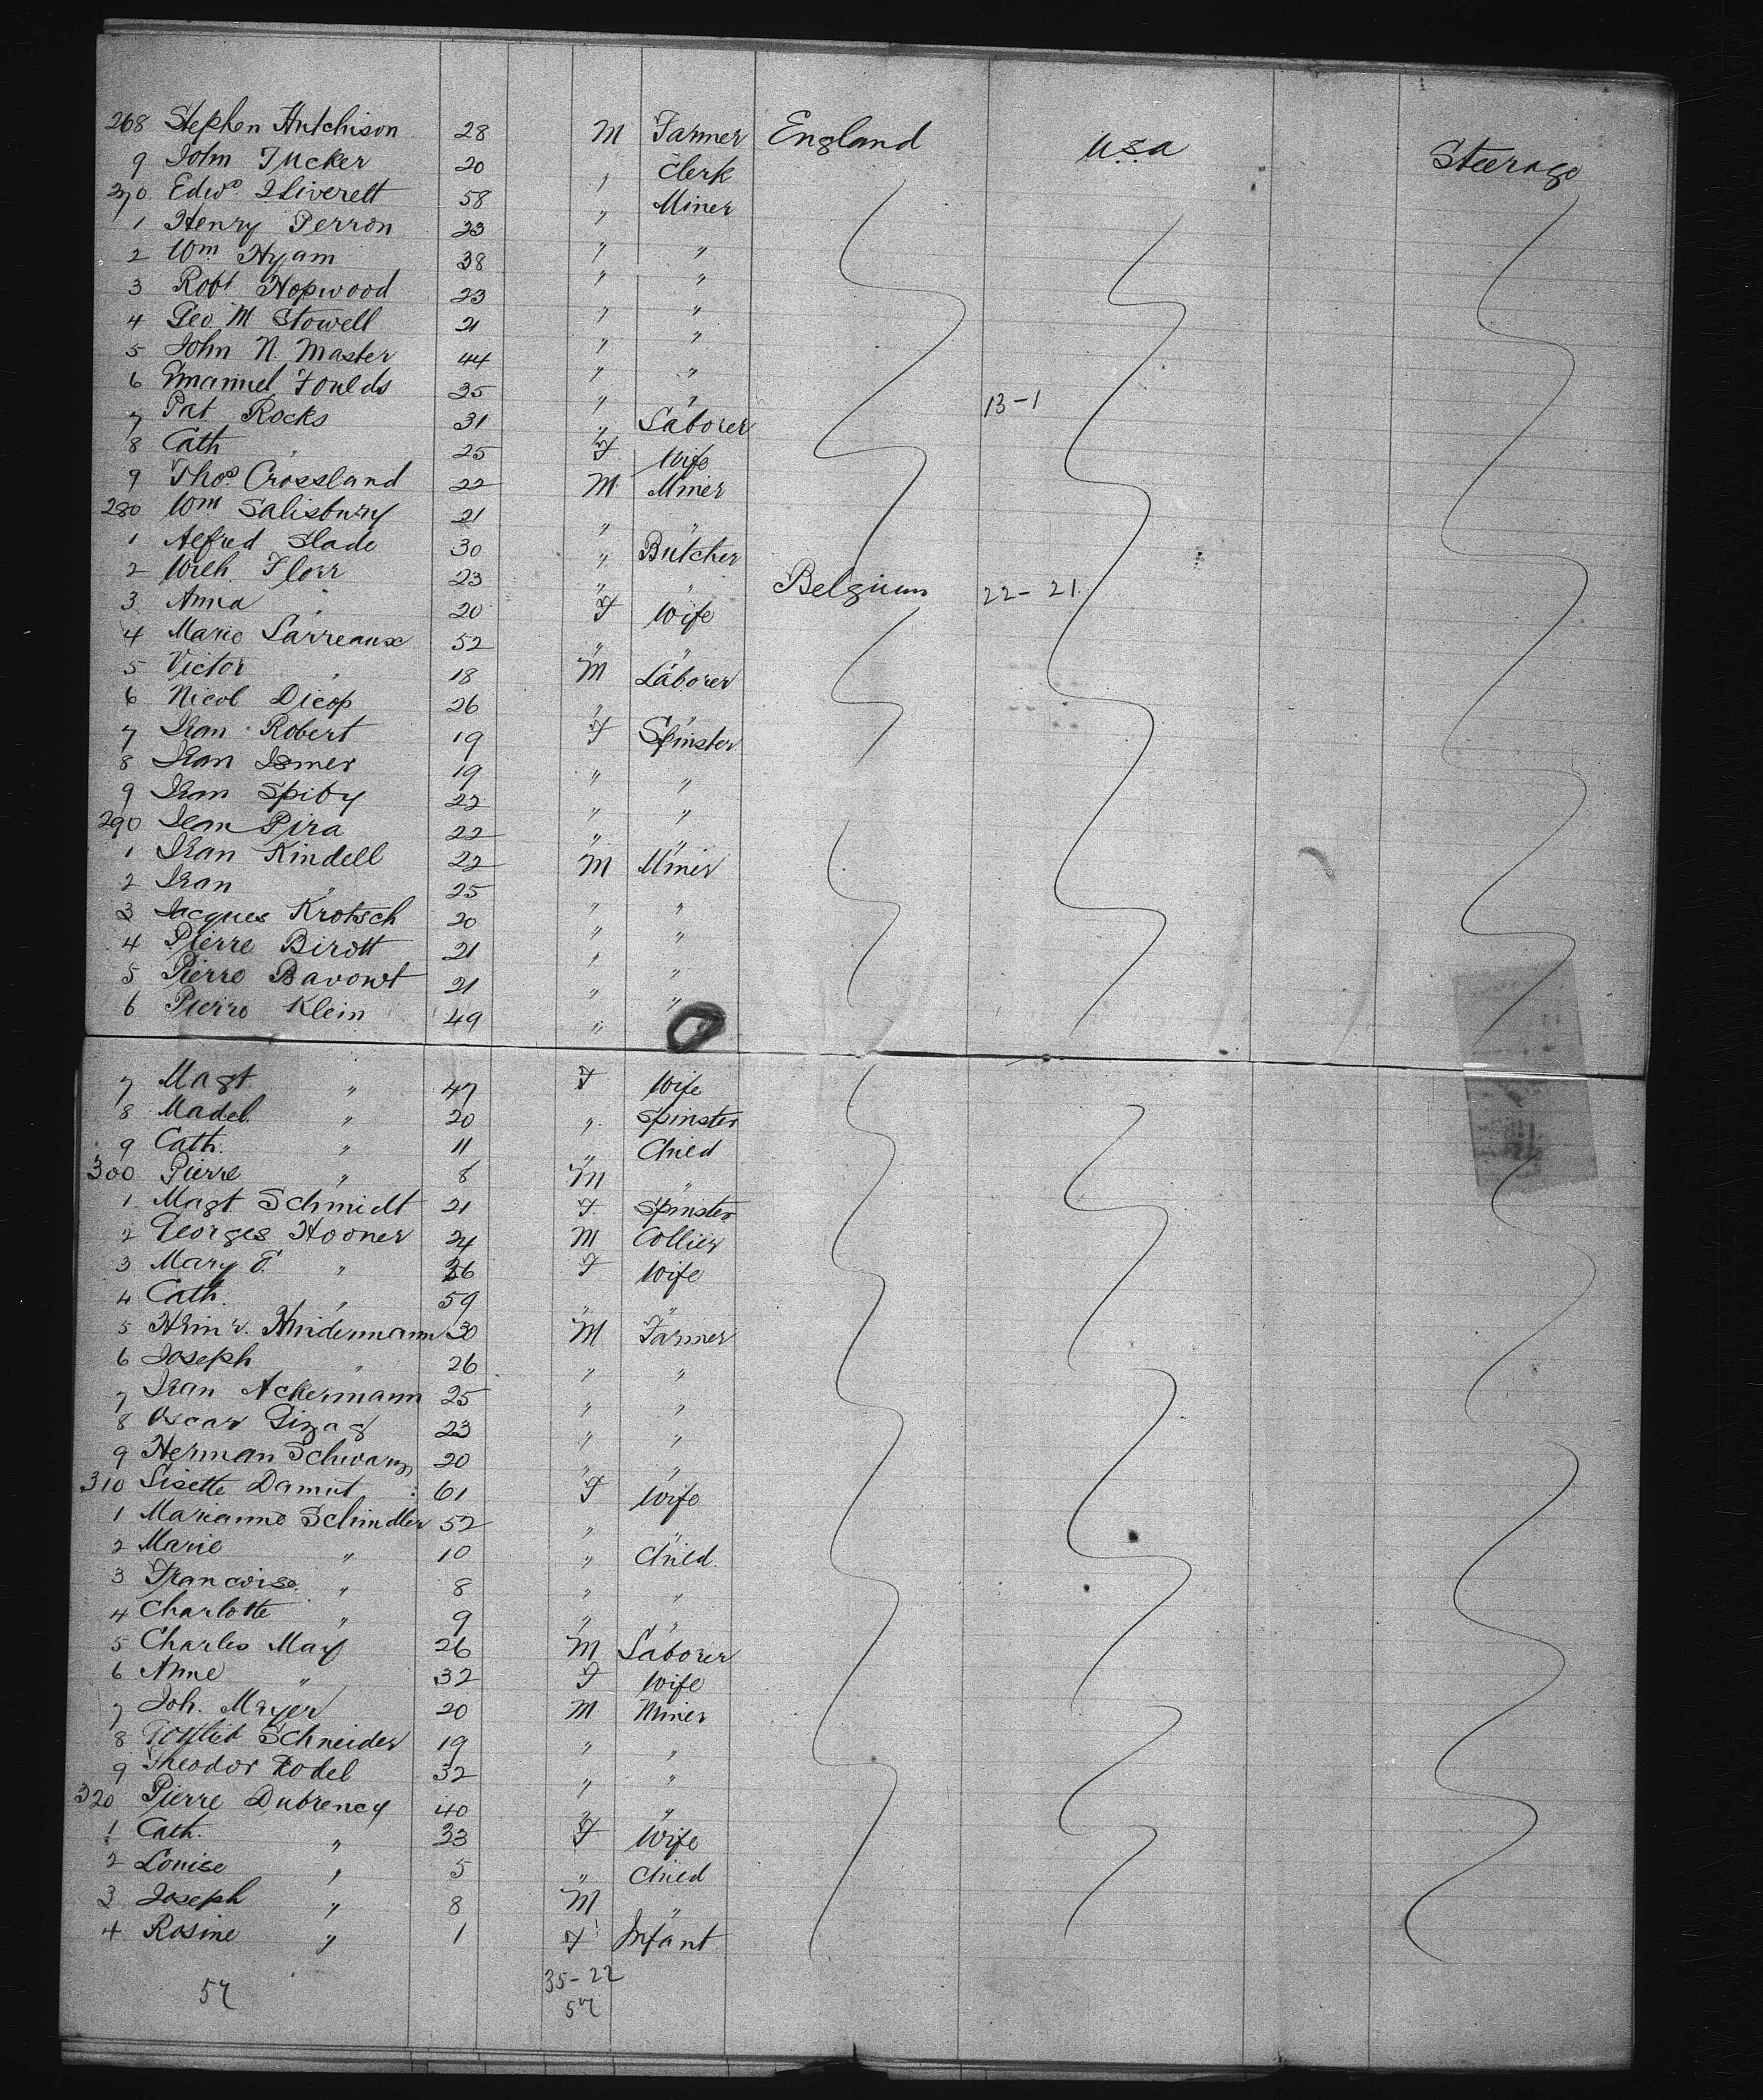 268 Stephen Hutchison 28 M Farmer England U.S.A Steerage
9 John Tucker 20 " Clerk
270 Edwd. Sliverett 58 " Miner
1 Henry Perron 23 " "
2 Wm Hyam 38 " "
3 Robt Hopwood 23 " "
4 Geo M Stowell 21 " "
5 John N. Master 44 " "
6 Emanuel Foulds 35 " " 13-1
7 Pat Rocks 31 " Laborer
8 Cath " 25 F Wife
9 Thos. Crossland 22 M Miner
280 Wm Salisbury 21 " "
1 Alfred Slade 30 " Butcher
2 Wilh. Florr 23 " " Belgium 22-21
3 Anna " 20 F Wife
4 Marie Larreaux 52 " "
5 Victor " 18 M Laborer
6 Nicol Dicop 26 " "
7 Jean Robert 19 F Spinster
8 Jean Ismer 19 " "
9 Jean Spiby 22 " "
290 Jean Pira 22 " "
1 Jean Kindell 22 M Miner
2 Jean " 25 " "
3 Jacques Krotsch 20 " "
4 Pierre Birott 21 " "
5 Pierre Bavowt 21 " "
6 Pierre Klein 49 " "
7 Magt " 47 F Wife
8 Madel. " 20 " Spinster
9 Cath. " 11 " Child
300 Pierre " 8 M "
1 Magt Schmidt 21 F Spinster
2 Georges Hooner 24 M Collier
3 Mary E. " 26 F Wife
4 Cath. " 59 " "
5 Heinr. Hindermann 30 M Farmer
6 Joseph " 26 " "
7 Jean Ackermann 25 " "
8 Oscar Gizag 23 " "
9 Herman Schwarz 20 " "
310 Lisette Damut 61 F Wife
1 Marianne Schindler 52 " "
2 Marie " 10 " Child
3 Francoise " 8 " "
4 Charlotte " 9 " "
5 Charles May 26 M Laborer
6 Anne " 32 F Wife
7 Joh. Mayer 20 M Miner
8 Gottlieb Schneider 19 " "
9 Theodor Rodel 32 " "
320 Pierre Dubrency 40 " "
1 Cath. " 33 F Wife
2 Louise " 5 " Child
3 Joseph " 8 M "
4 Rosine " 1 F Infant
57 35-22
57